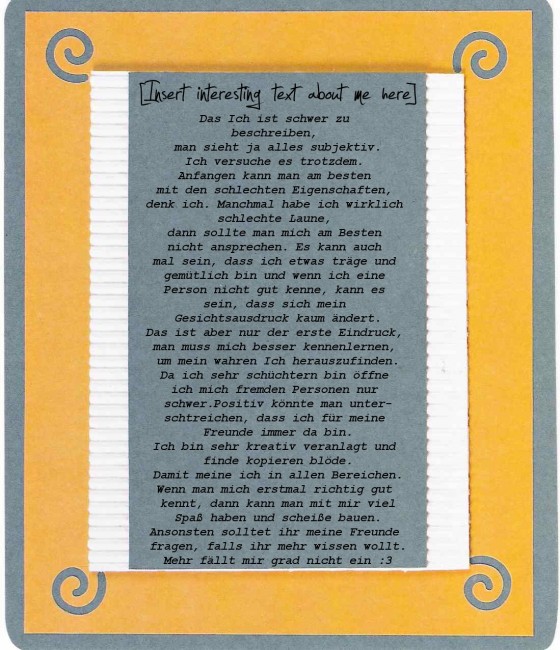 [Insert interesting text about me here]
Das Ich ist schwer zu
beschreiben,
man sieht ja alles subjektiv.
Ich versuche es trotzdem.
Anfangen kann man am besten
mit den schlechten Eigenschaften,
denk ich. Manchmal habe ich wirklich
schlechte Laune,
dann sollte man mich am Besten
nicht ansprechen. Es kann auch
mal sein, dass ich etwas träge und
gemütlich bin und wenn ich eine
Person nicht gut kenne, kann es
sein, dass sich mein
Gesichtsausdruck kaum ändert.
Das ist aber nur der erste Eindruck,
man muss mich besser kennenlernen,
um mein wahren Ich herauszufinden.
Da ich sehr schüchtern bin öffne
ich mich fremden Personen nur
schwer.Positiv könnte man unter-
schtreichen, dass ich für meine
Freunde immer da bin.
Ich bin sehr kreativ veranlagt und
finde kopieren blöde.
Damit meine ich in allen Bereichen.
Wenn man mich erstmal richtig gut
kennt, dann kann man mit mir viel
Spaß haben und scheiße bauen.
Ansonsten solltet ihr meine Freunde
fragen, falls ihr mehr wissen wollt.
Mehr fällt mir grad nicht ein :3